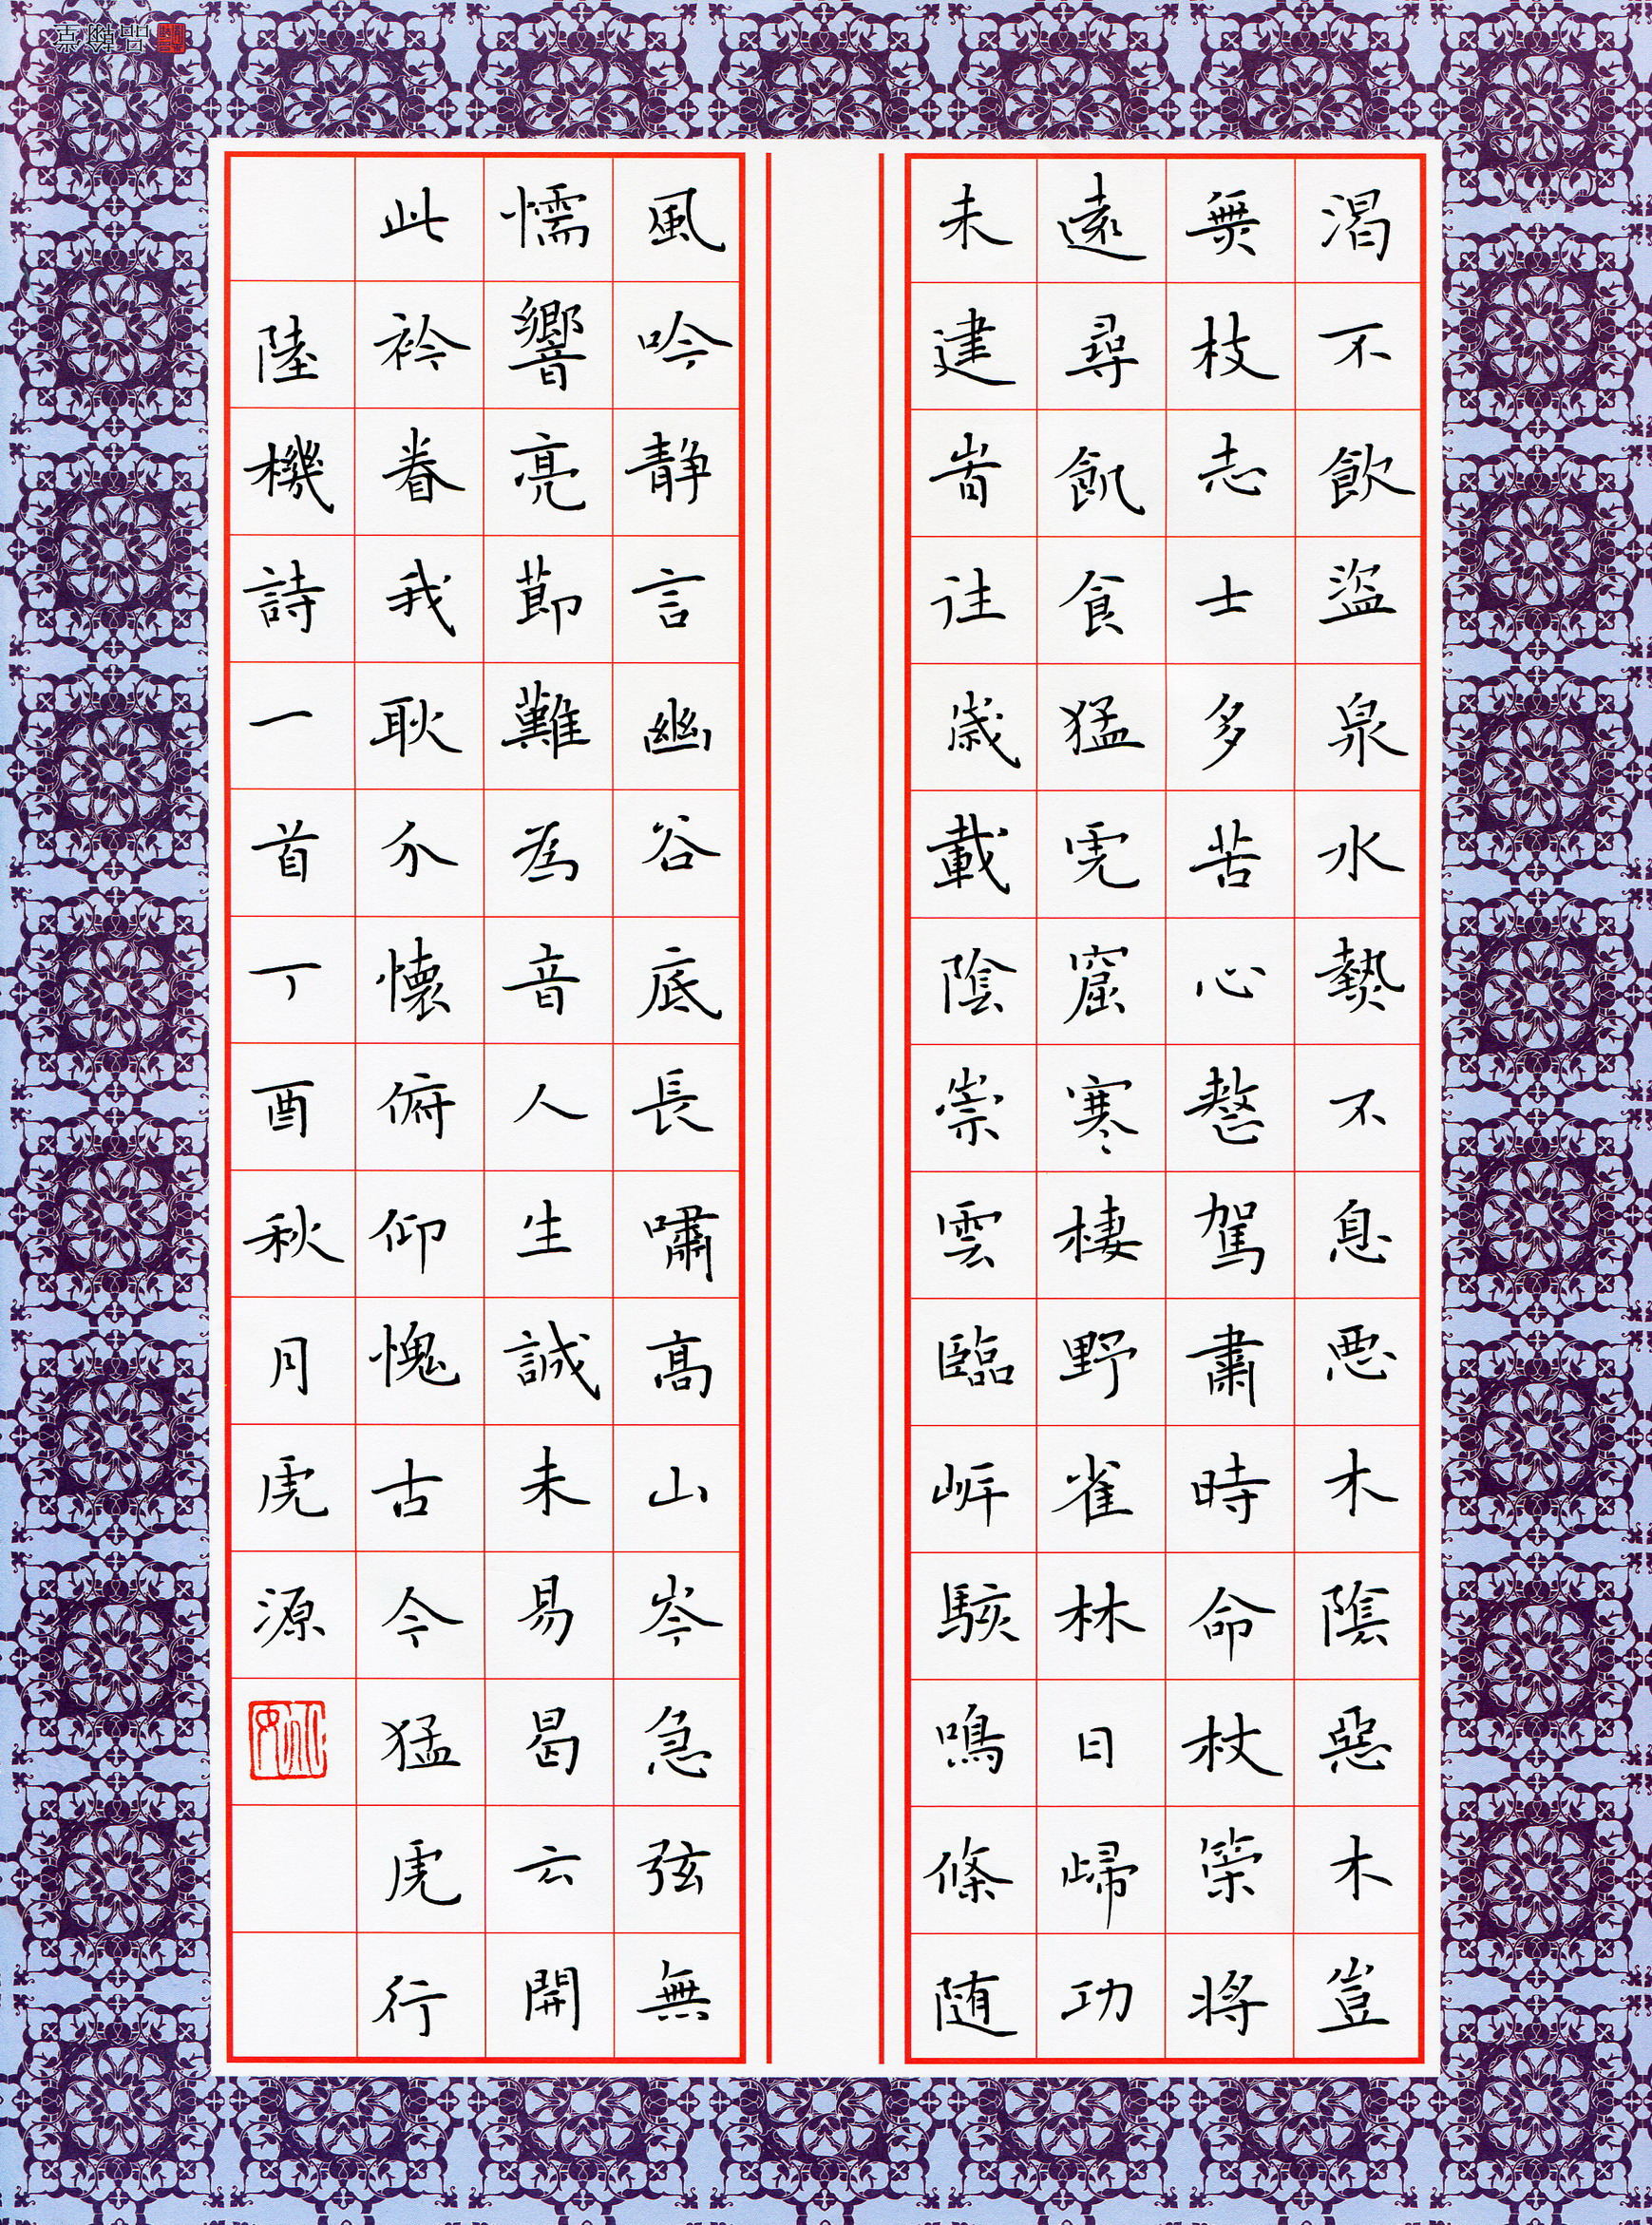 渴不飲盜泉水熱不息悪木陰惡木豈
無枝志士多苦心整駕肅時命杖策將
遠尋飢食猛虎窟寒棲野雀林日歸功
未建旹往歲載陰崇雲臨岸駭鳴條随
風吟静言幽谷底長嘯高山岑急弦無
懦響亮節難為音人生誠未易曷云開
此衿眷我耿介懷俯仰愧古今猛虎行
陸機詩一首丁酉秋月虎源